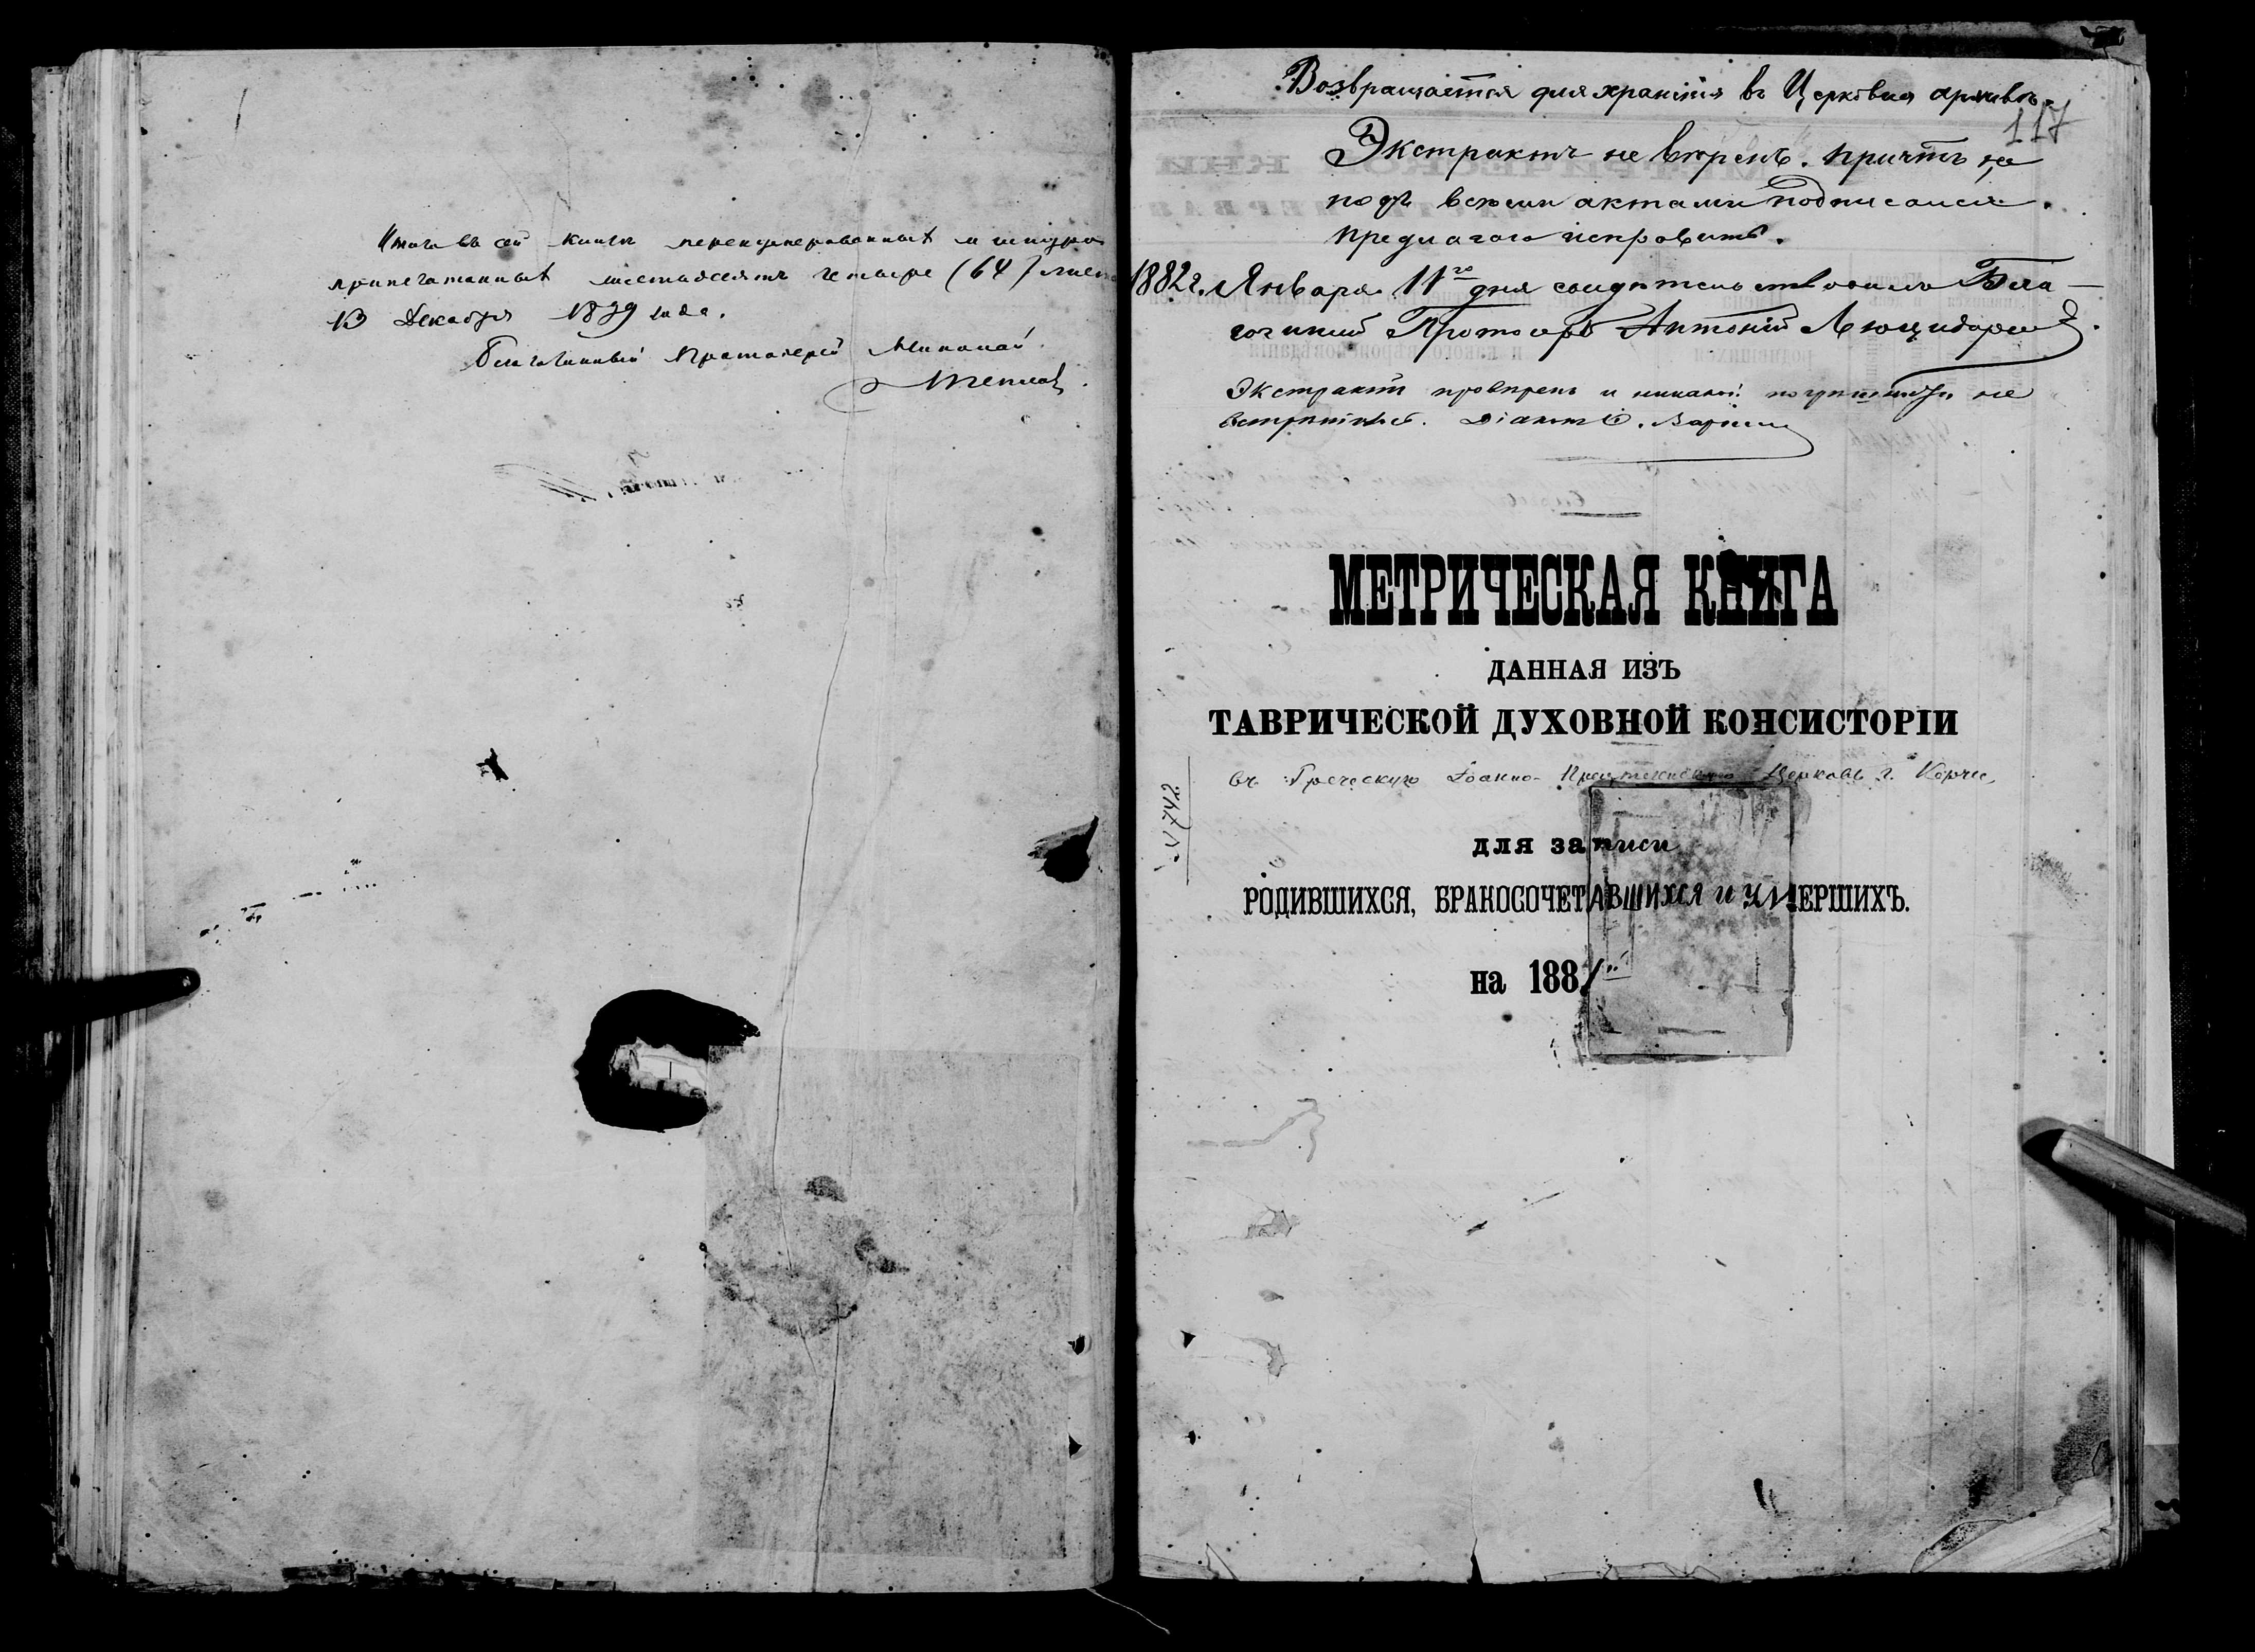 Итого въ сей книгѣ перенумерованныхъ и шнуро
припечатанныхъ шестьдесятъ четыре (64)
13 Декабря 1879 года.
Благочинный Протоіерей Николай
Возвращается для храненія въ Церковн архивѣ.
117
Экстрактъ не вѣренъ. Причтъ не
подъ всеми актами подписался.
Предлагаю исправить.
1882 г. Января 11го дня свидѣтельствовалъ Бла-
гочинный Протоіерей Антоній
Экстрактъ провѣренъ и никакой погрѣшности не
встрѣтилось. Діаконъ
МЕТРИЧЕСКАЯ КНИГА
ДАННАЯ ИЗЪ
ТАВРИЧЕСКОЙ ДУХОВНОЙ КОНСИСТОРІИ
въ Греческую Іоанно-Предтеченскую Церковь г. Керчи
№ 742
для записи
РОДИВШИХСЯ, БРАКОСОЧЕТАВШИХСЯ и УМЕРШИХЪ.
на 1881